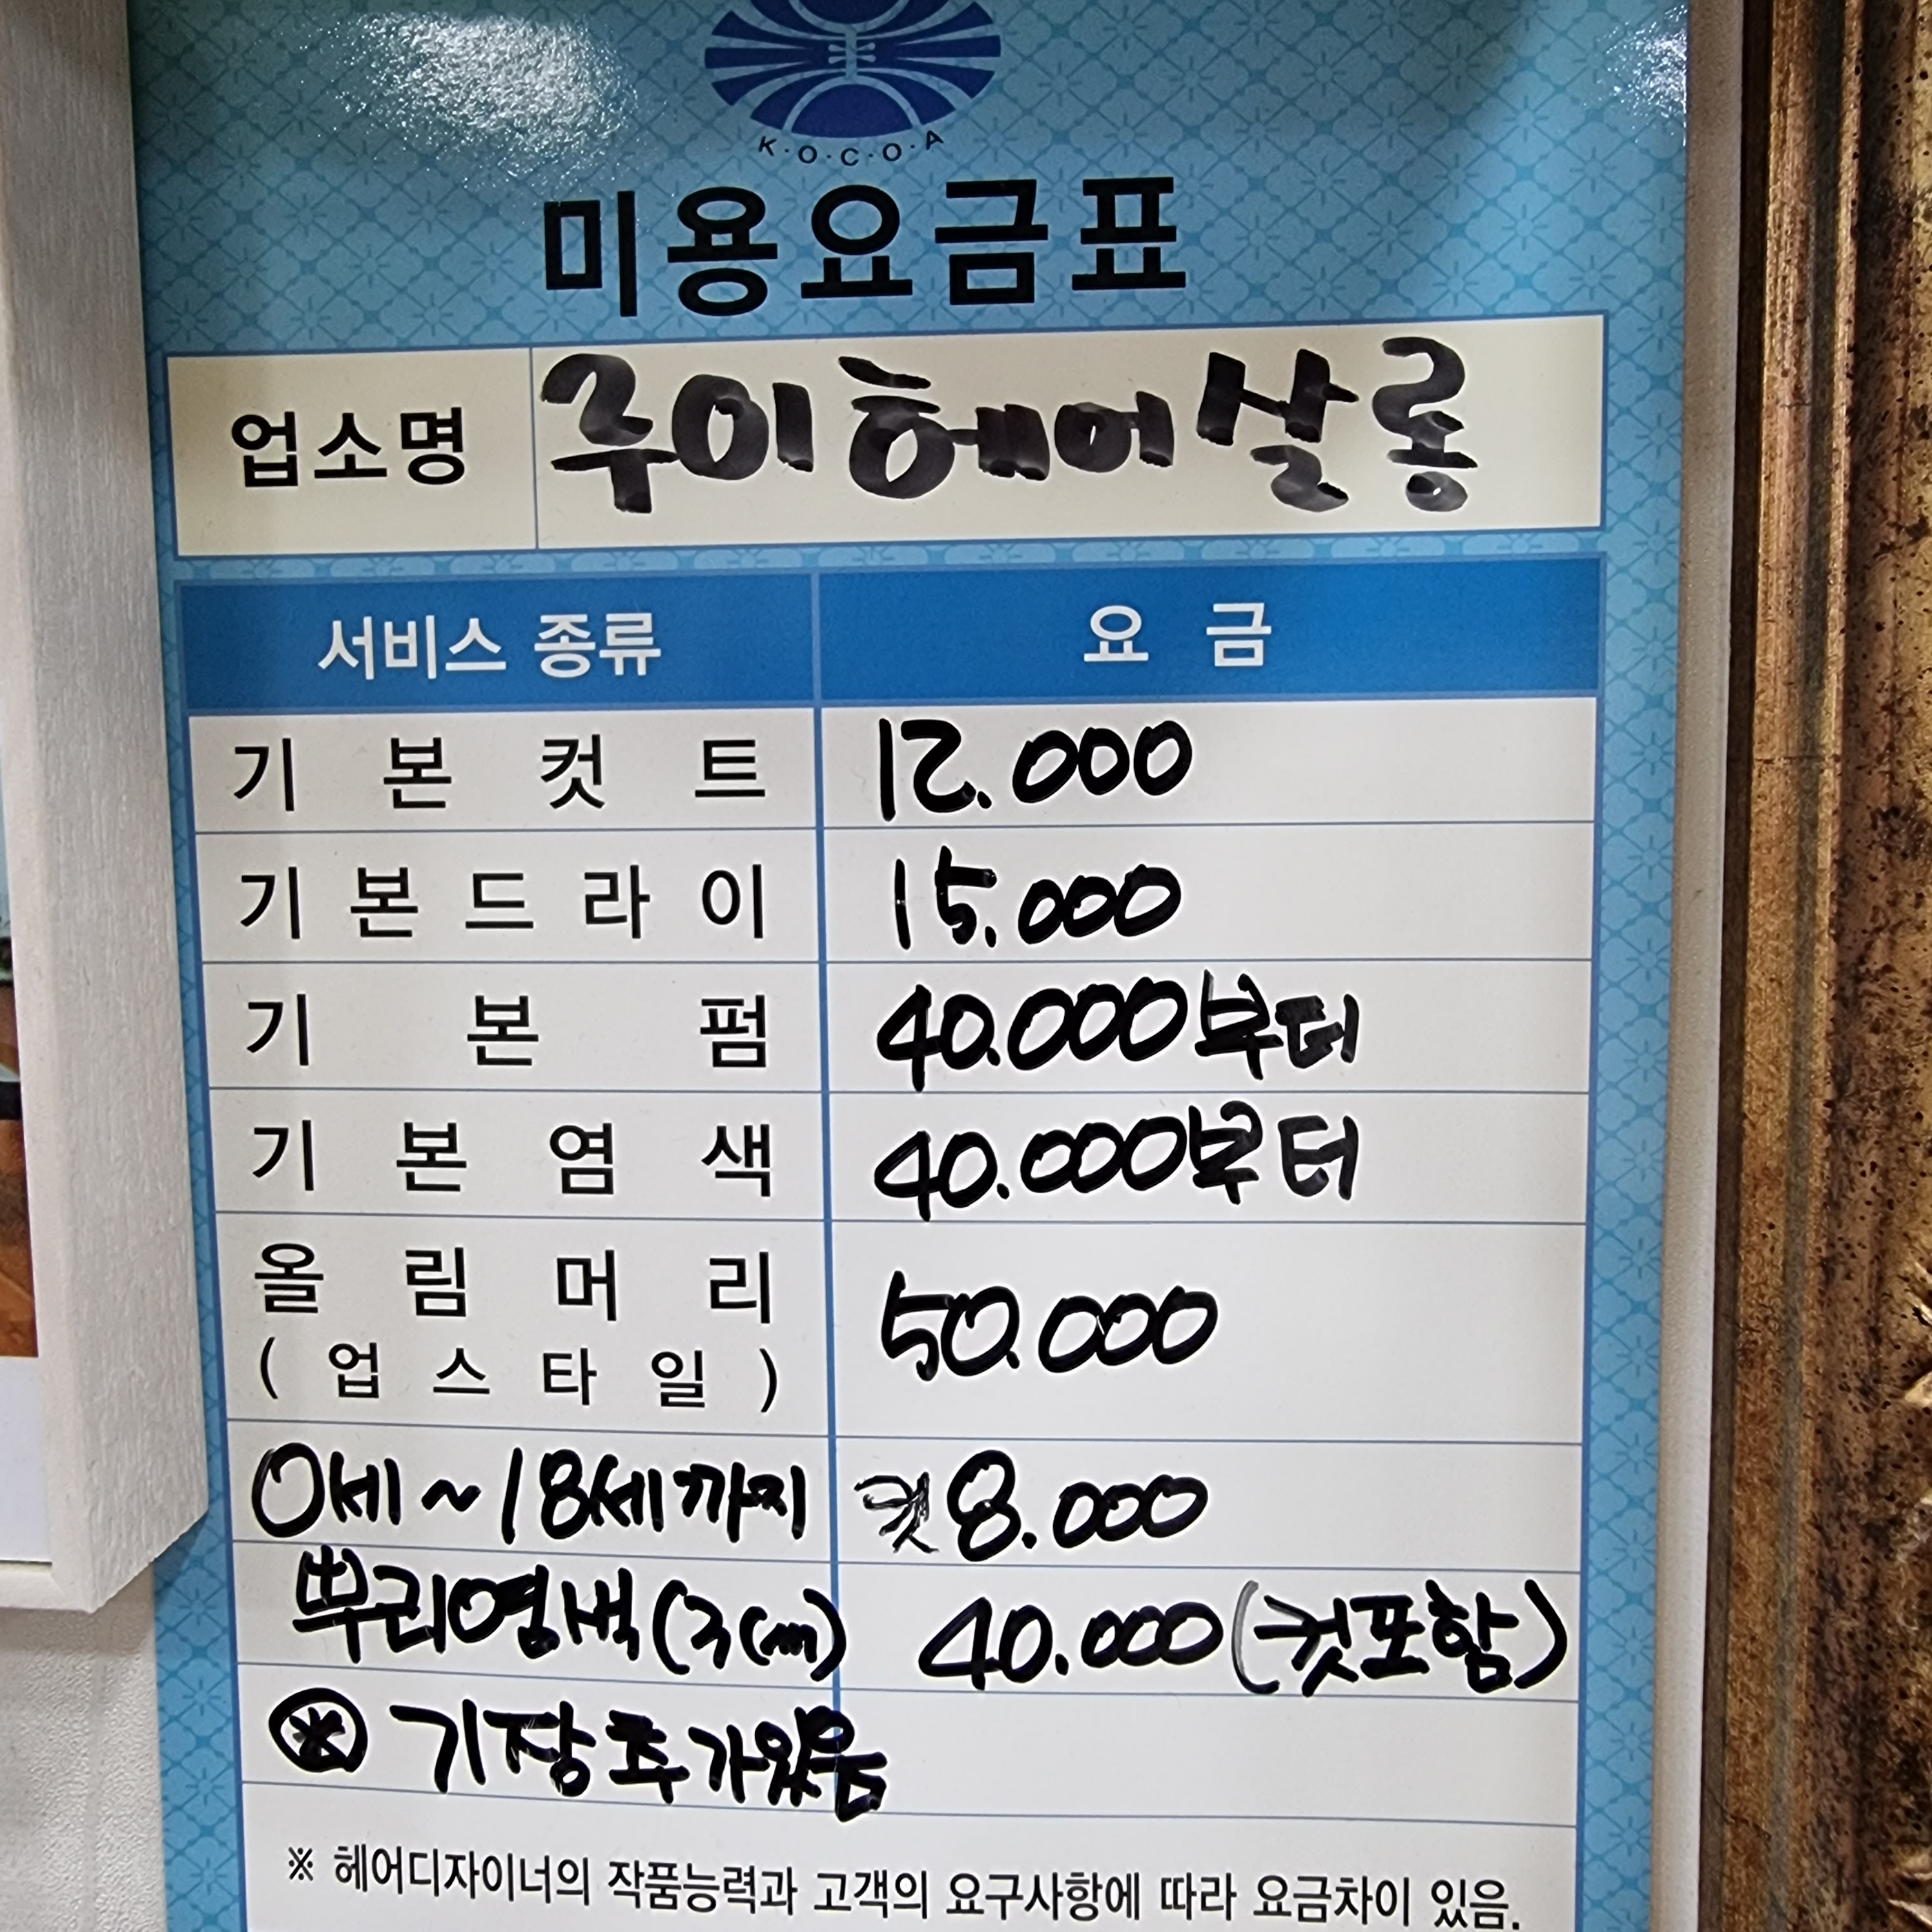 K·O·C·O·A
미용요금표
업소명 루이헤어살롱
서비스 종류 요 금
기 본 컷 트 12.000
기 본 드 라 이 15.000
기 본 펌 40.000부터
기 본 염 색 40.000부터
올 림 머 리
( 업 스 타 일 ) 50.000
0세~18세까지 컷 8.000
뿌리염색(3cm) 40.000(컷포함)
※ 기장추가있음
※ 헤어디자이너의 작품능력과 고객의 요구사항에 따라 요금차이 있음.